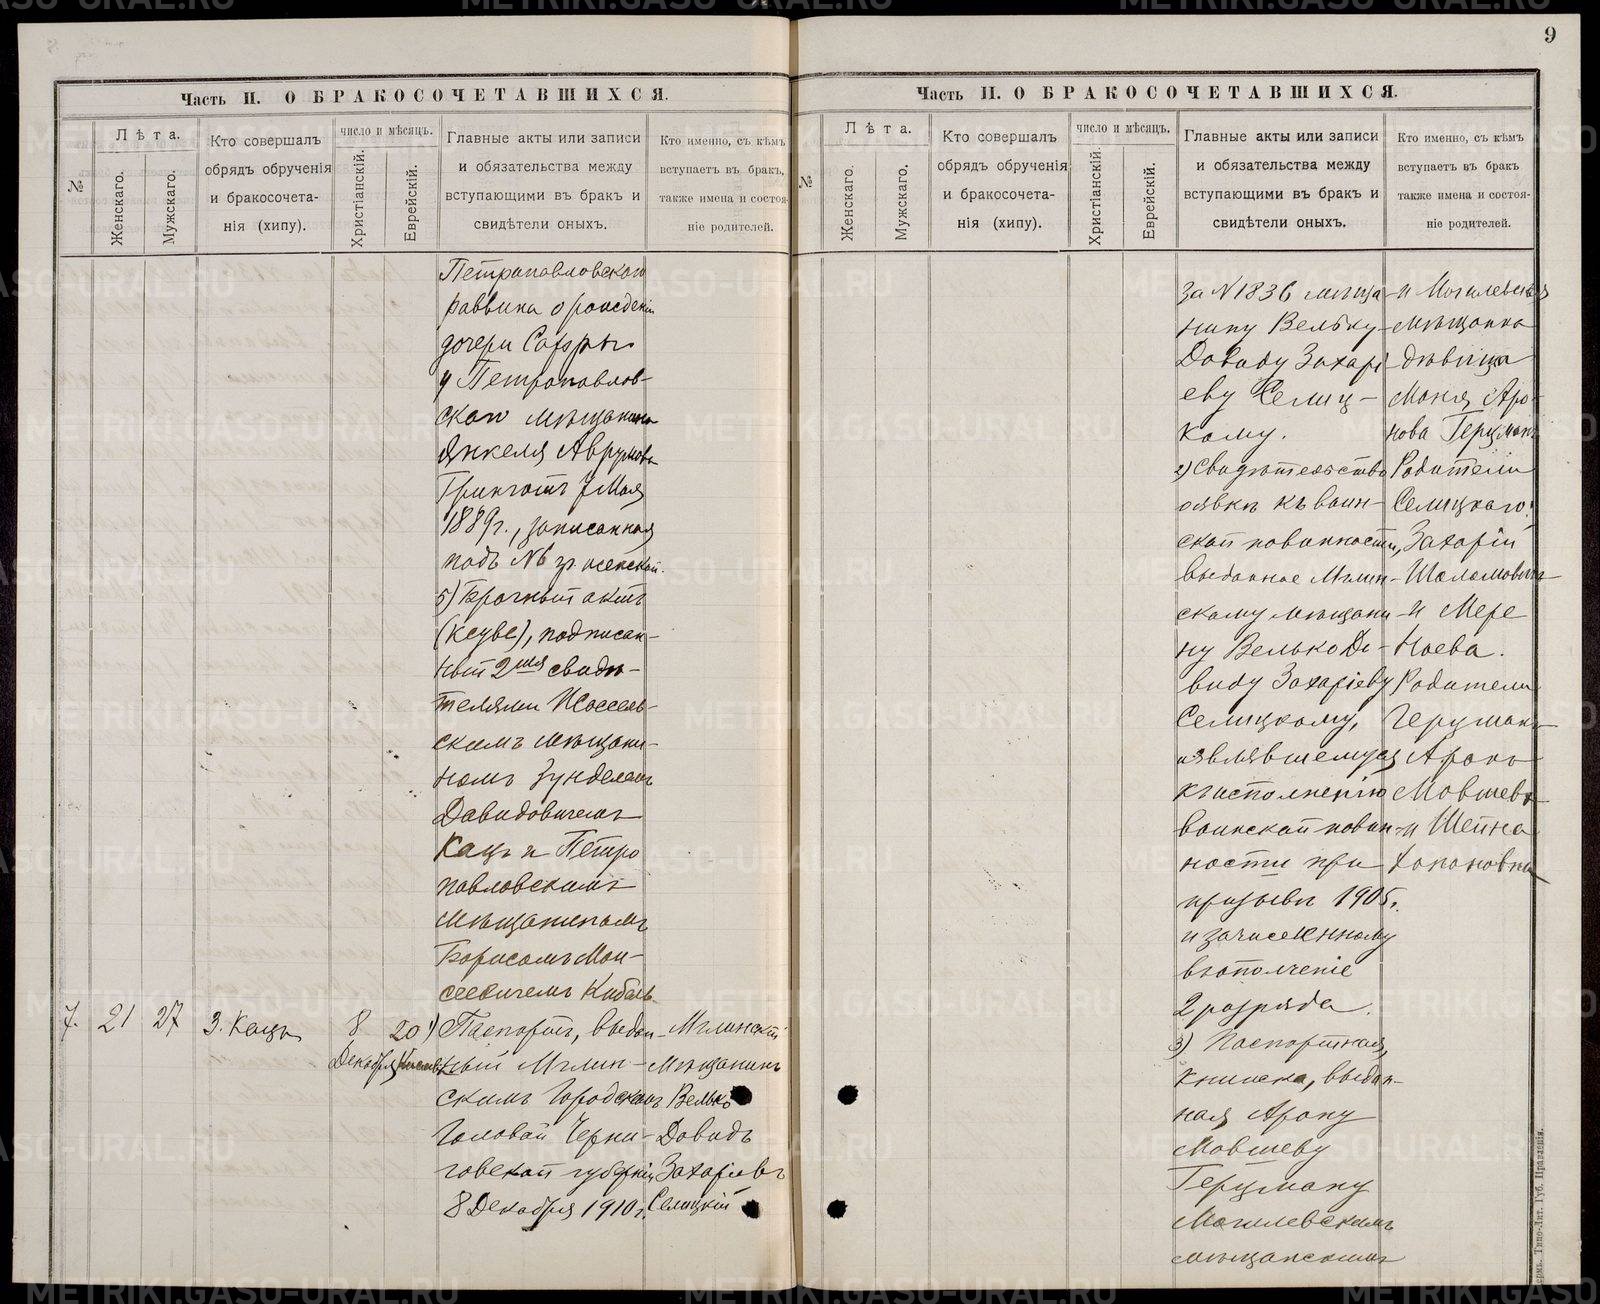 9
Часть II. О БРАКОСОЧЕТАВШИХСЯ.
№
Лѣта.
Женскаго.
Мужскаго.
Кто совершалъ
обрядъ обрученія
и бракосочета-
нія (хипу).
число и мѣсяцъ.
Христіанскій.
Еврейскій.
Главные акты или записи
и обязательства между
вступающими въ бракъ и
свидѣтели оныхъ.
Кто именно, съ кѣмъ
вступаетъ въ бракъ,
также имена и состоя-
ніе родителей.
Петропавловскаго
раввина о рожденіи
дочери Сарры
у Петропавлов-
скаго мѣщанина
Янкеля Аврумова
7 Мая
1889 г., записанная
подъ №6 гр. женской.
5) Брачный актъ
(ксуве), подписан-
ный 2мя свидѣ-
телями
скимъ мѣщани-
номъ Зунделемъ
Давидовичемъ
Кацъ и Петро
павловскимъ
мѣщаниномъ
Борисомъ Мои-
сеевичемъ
7. 21 27 З. Кацъ 8 20
Декабря Кислевъ
1) Паспортъ, выдан-
ный Мглин-
скимъ Городскимъ
Головой Черни-
говской губерніи
8 Декабря 1910 г.
Мглинскій
мѣщанинъ
Велько
Давидъ
Захаріевъ
Селицкій
Часть II. О БРАКОСОЧЕТАВШИХСЯ.
№
Лѣта.
Женскаго.
Мужскаго.
Кто совершалъ
обрядъ обрученія
и бракосочета-
нія (хипу).
число и мѣсяцъ.
Христіанскій.
Еврейскій.
Главные акты или записи
и обязательства между
вступающими въ бракъ и
свидѣтели оныхъ.
Кто именно, съ кѣмъ
вступаетъ въ бракъ
также имена и состоя-
ніе родителей.
за №1836 мѣща-
нину Вельку-
Давиду Захарі-
еву Селиц-
кому.
2) Свидѣтельство
о явкѣ къ воин-
ской повинности,
выданное Мглин-
скому мѣщани-
ну Велько Да-
виду Захаріеву
Селицкому,
являвшемуся
къ исполненію
воинской повин-
ности при
призывѣ 1905 г.
и зачисленному
въ ополченіе
2 разряда.
3) Паспортная
книжка, выдан-
ная Арону
Мовшеву
Герцману
Могилевскимъ
мѣщанскимъ
и Могилевская
мѣщанка
дѣвица
Маня Аро-
нова Герцманъ
Родители
Селицкаго:
Захарій
Шоломовичъ
и Мере
Ноева.
Родители
Герцманъ
Аронъ
Мовшевъ
и Шейна
METRIKI.GASO-URAL.RU